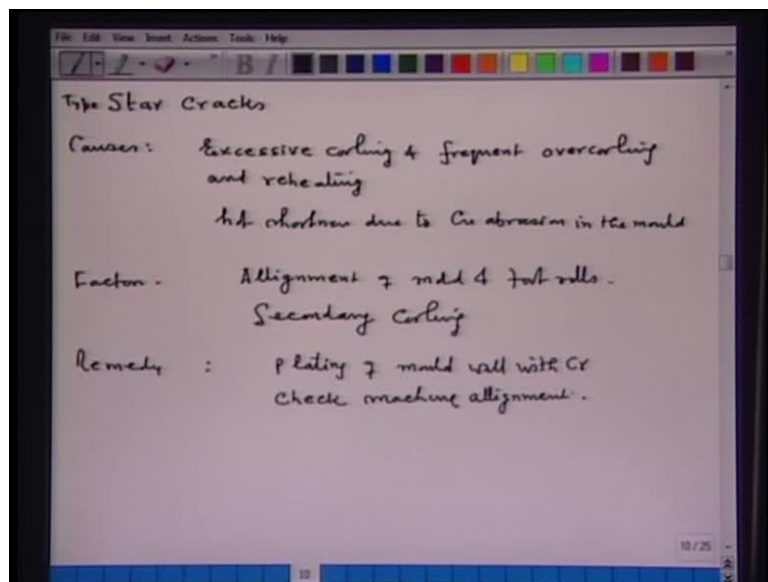 File Edit View Insert Actions Tools Help
Type Star Cracks
Causes: Excessive cooling & frequent overcooling
and reheating
hot shortness due to Cu abrasion in the mould
Factors - Allignment of mold & foot rolls.
Secondary Cooling
Remedy : plating of mould wall with Cr
Check machine allignment.
10/25
10